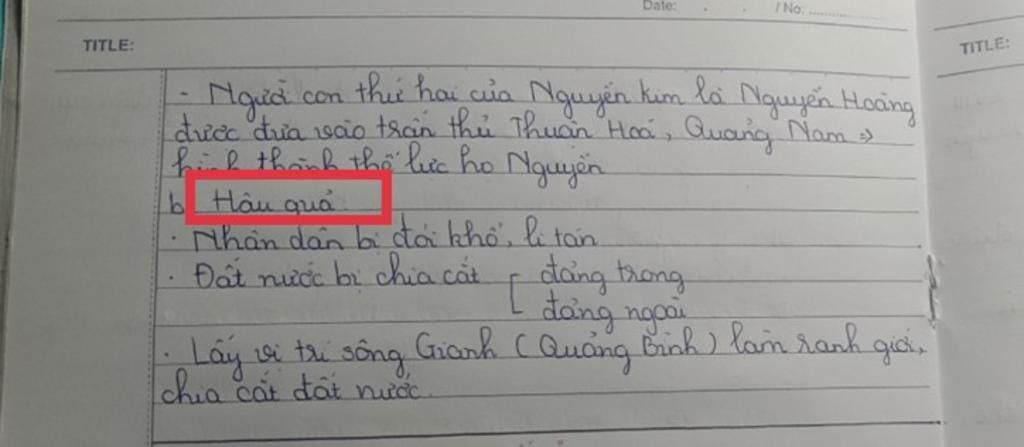 Date: . . / No:
TITLE:
TITLE:
- Người con thứ hai của Nguyễn Kim là Nguyễn Hoàng
được đưa vào trấn thủ Thuận Hoá, Quảng Nam =>
hình thành thế lực họ Nguyễn
b Hậu quả:
. Nhân dân bị đói khổ, li tán
. Đất nước bị chia cắt [ đàng trong
đàng ngoài
. Lấy vị trí sông Gianh (Quảng Bình) làm ranh giới,
chia cắt đất nước.